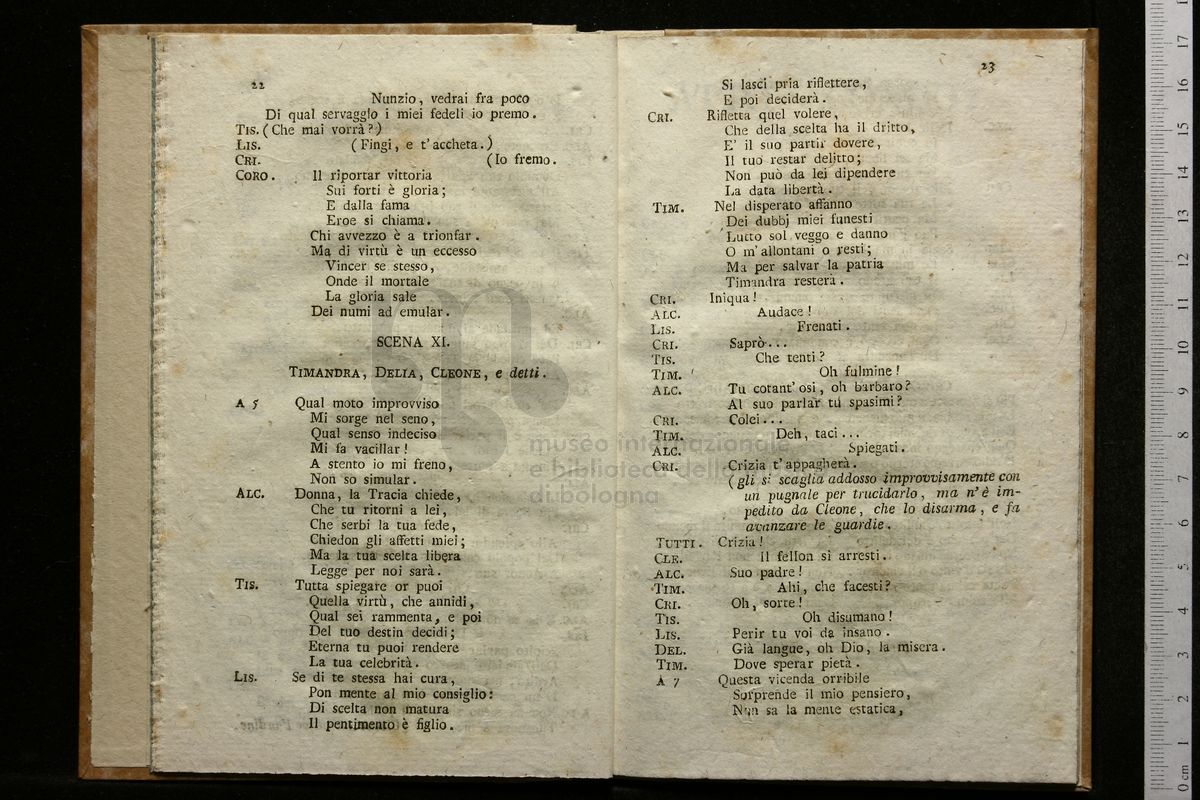 22
Nunzio, vedrai fra poco
Di qual servaggio i miei fedeli io premo.
TIS. (Che mai vorrà?)
LIS. (Fingi, e t'accheta.)
CRI. (Io fremo.
CORO. Il riportar vittoria
Sui forti è gloria;
E dalla fama
Eroe si chiama.
Chi avvezzo è a trionfar.
Ma di virtù è un eccesso
Vincer se stesso,
Onde il mortale
La gloria sale
Dei numi ad emular.
SCENA XI.
TIMANDRA, DELIA, CLEONE, e detti.
A 5 Qual moto improvviso
Mi sorge nel seno,
Qual senso indeciso
Mi fa vacillar!
A stento io mi freno,
Non so simular.
ALC. Donna, la Tracia chiede,
Che tu ritorni a lei,
Che serbi la tua fede,
Chiedon gli affetti miei;
Ma la tua scelta libera
Legge per noi sarà.
TIS. Tutta spiegare or puoi
Quella virtù, che annidi,
Qual sei rammenta, e poi
Del tuo destin decidi;
Eterna tu puoi rendere
La tua celebrità.
LIS. Se di te stessa hai cura,
Pon mente al mio consiglio:
Di scelta non matura
Il pentimento è figlio.
23
Si lasci pria riflettere,
E poi deciderà.
CRI. Rifletta quel volere,
Che della scelta ha il dritto,
E' il suo partir dovere,
Il tuo restar delitto;
Non può da lei dipendere
La data libertà.
TIM. Nel disperato affanno
Dei dubbj miei funesti
Lutto sol veggo e danno
O m'allontani o resti;
Ma per salvar la patria
Timandra resterà.
CRI. Iniqua!
ALC. Audace!
LIS. Frenati.
CRI. Saprò...
TIS. Che tenti?
TIM. Oh fulmine!
ALC. Tu cotant'osi, oh barbaro?
Al suo parlar tu spasimi?
CRI. Colei...
TIM. Deh, taci...
ALC. Spiegati.
CRI. Crizia t'appagherà.
(gli si scaglia addosso improvvisamente con
un pugnale per trucidarlo, ma n'è im-
pedito da Cleone, che lo disarma, e fa
avanzare le guardie.
TUTTI. Crizia!
CLE. Il fellon si arresti.
ALC. Suo padre!
TIM. Ahi, che facesti?
CRI. Oh, sorte!
TIS. Oh disumano!
LIS. Perir tu voi da insano.
DEL. Già langue, oh Dio, la misera.
TIM. Dove sperar pietà.
A 7 Questa vicenda orribile
Sorprende il mio pensiero,
Non sa la mente estatica,
museo internazionale
e biblioteca della
di bologna
0 cm 1 2 3 4 5 6 7 8 9 10 11 12 13 14 15 16 17